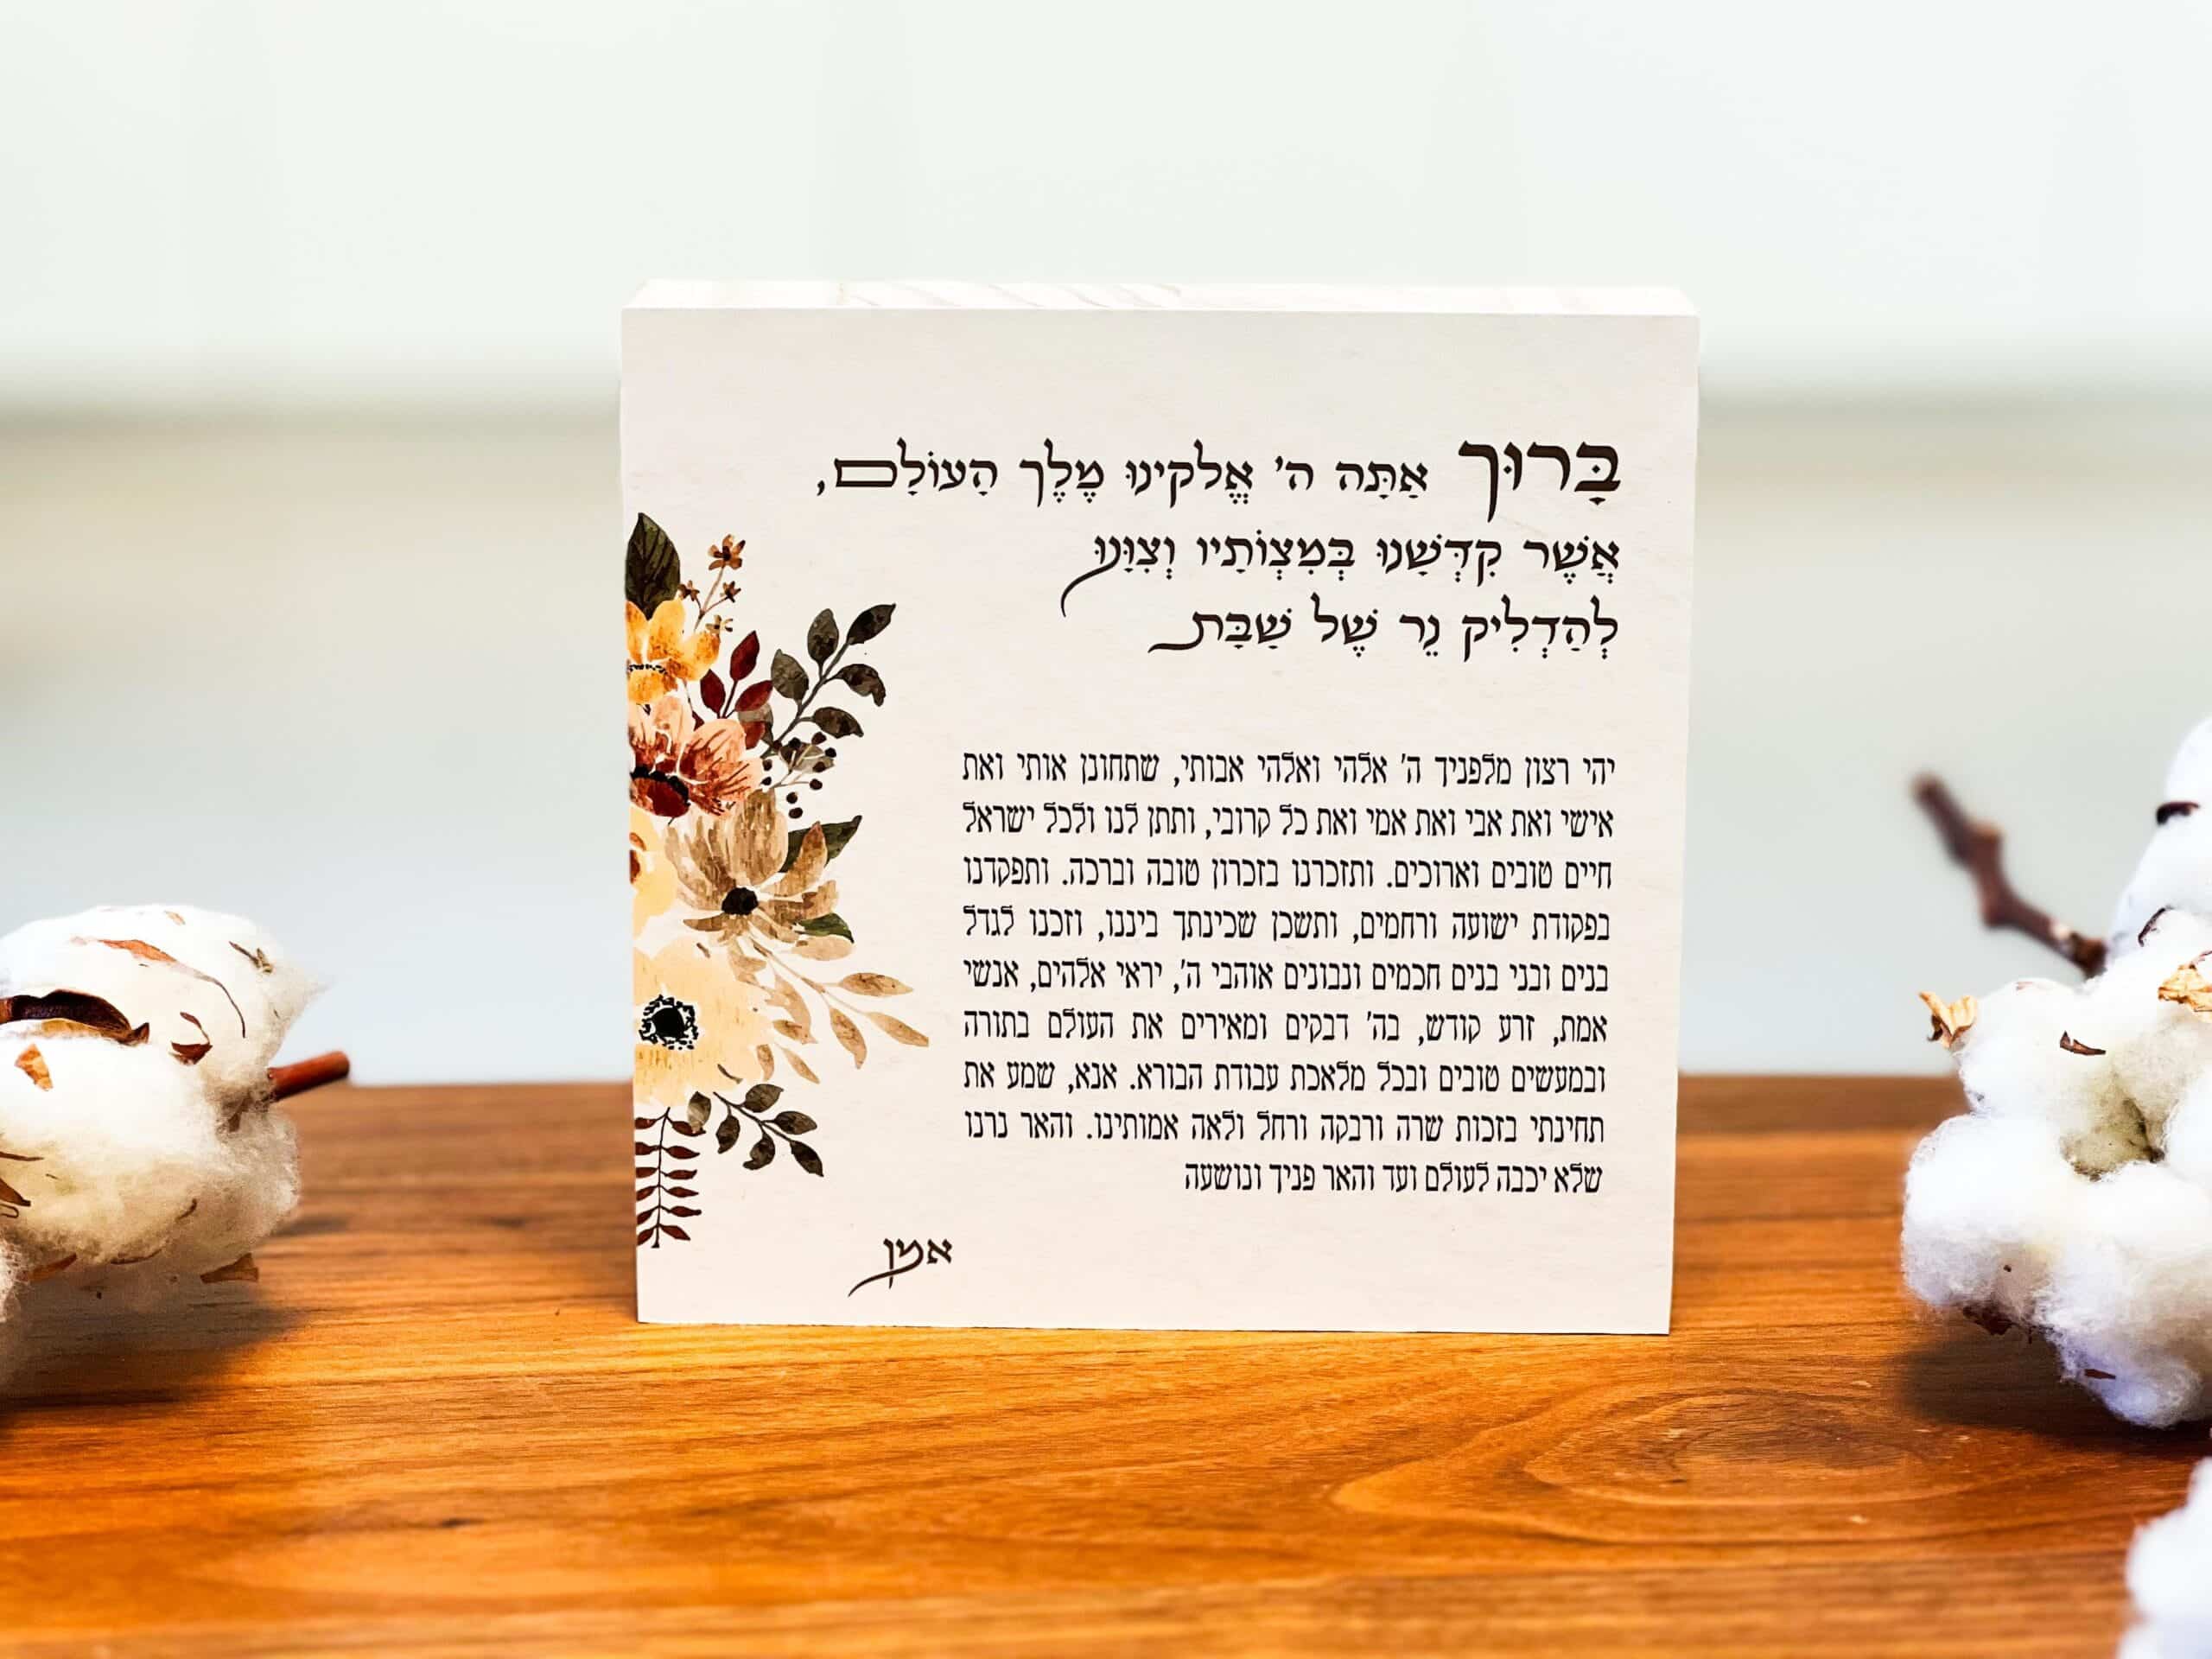 בָּרוּךְ אַתָּה ה' אֱלֹקֵינוּ מֶלֶךְ הָעוֹלָם,
אֲשֶׁר קִדְּשָׁנוּ בְּמִצְוֹתָיו וְצִוָּנוּ
לְהַדְלִיק נֵר שֶׁל שַׁבָּת
יהי רצון מלפניך ה' אלהי ואלהי אבותי, שתחונן אותי ואת
אישי ואת אבי ואת אמי ואת כל קרובי, ותתן לנו ולכל ישראל
חיים טובים וארוכים. ותזכרנו בזכרון טובה וברכה. ותפקדנו
בפקודת ישועה ורחמים, ותשכן שכינתך ביננו, וזכנו לגדל
בנים ובני בנים חכמים ונבונים אוהבי ה', יראי אלהים, אנשי
אמת, זרע קודש, בה' דבקים ומאירים את העולם בתורה
ובמעשים טובים ובכל מלאכת עבודת הבורא. אנא, שמע את
תחינתי בזכות שרה ורבקה ורחל ולאה אמותינו. והאר נרנו
שלא יכבה לעולם ועד והאר פניך ונושעה
אמן